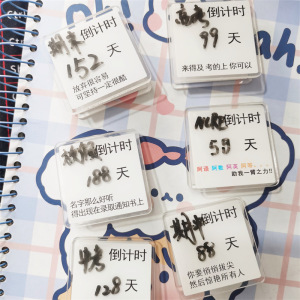 期末 倒计时
152
天
放弃很容易
可坚持一定很酷
倒计时
99
天
来得及 考的上 你可以
倒计时
188
天
名字那么好听
得出现在录取通知书上
倒计时
59
天
助我一臂之力!!
期中 倒计时
88
天
你要悄悄拔尖
然后惊艳所有人
倒计时
128
天